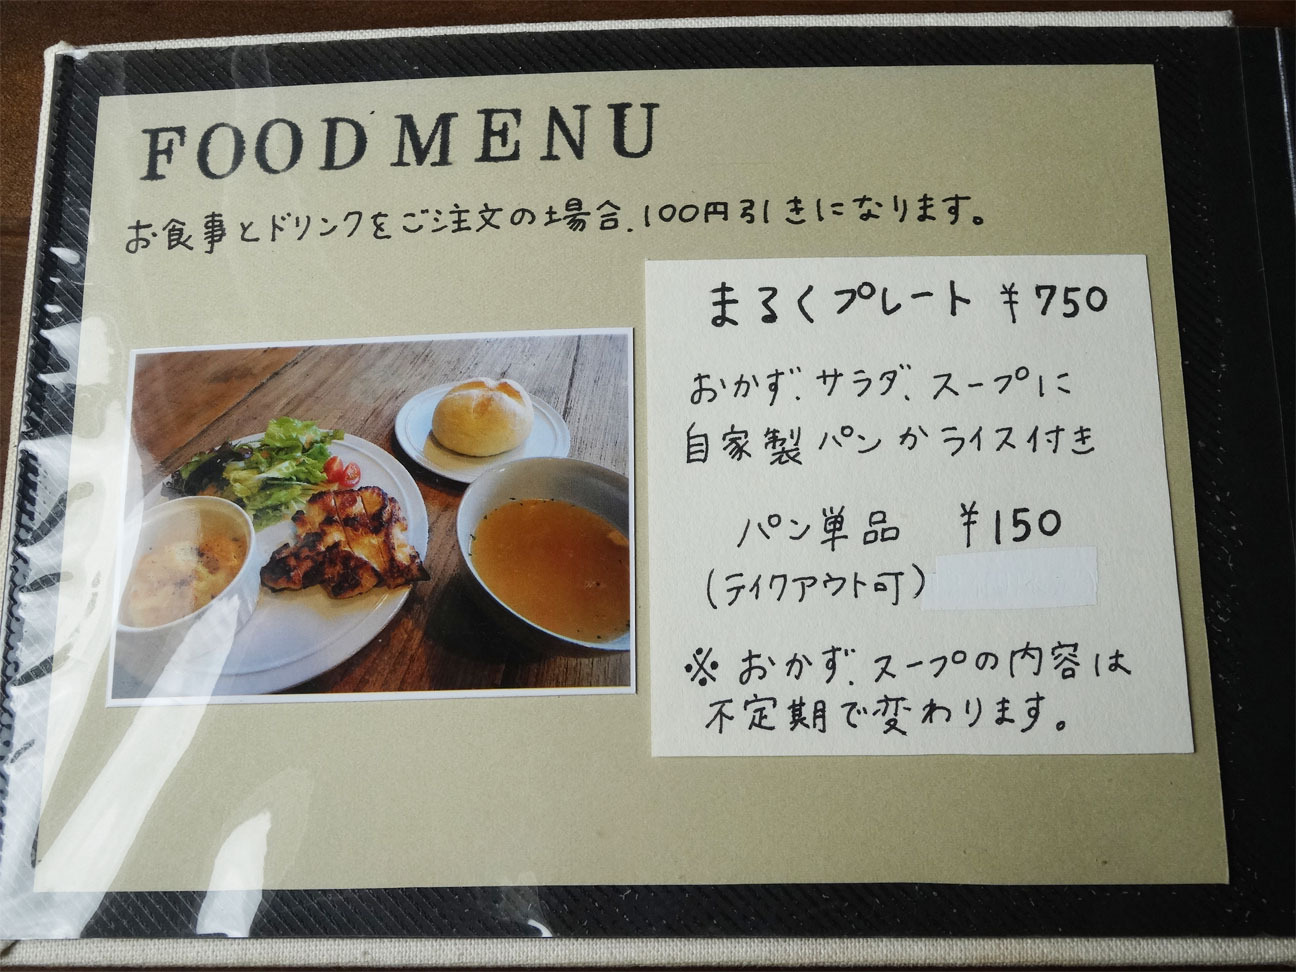 FOOD MENU
お食事とドリンクをご注文の場合、100円引きになります。
まるくプレート ¥750
おかず、サラダ、スープに
自家製パンかライス付き
パン単品 ¥150
(テイクアウト可)
※おかず、スープの内容は
不定期で変わります。